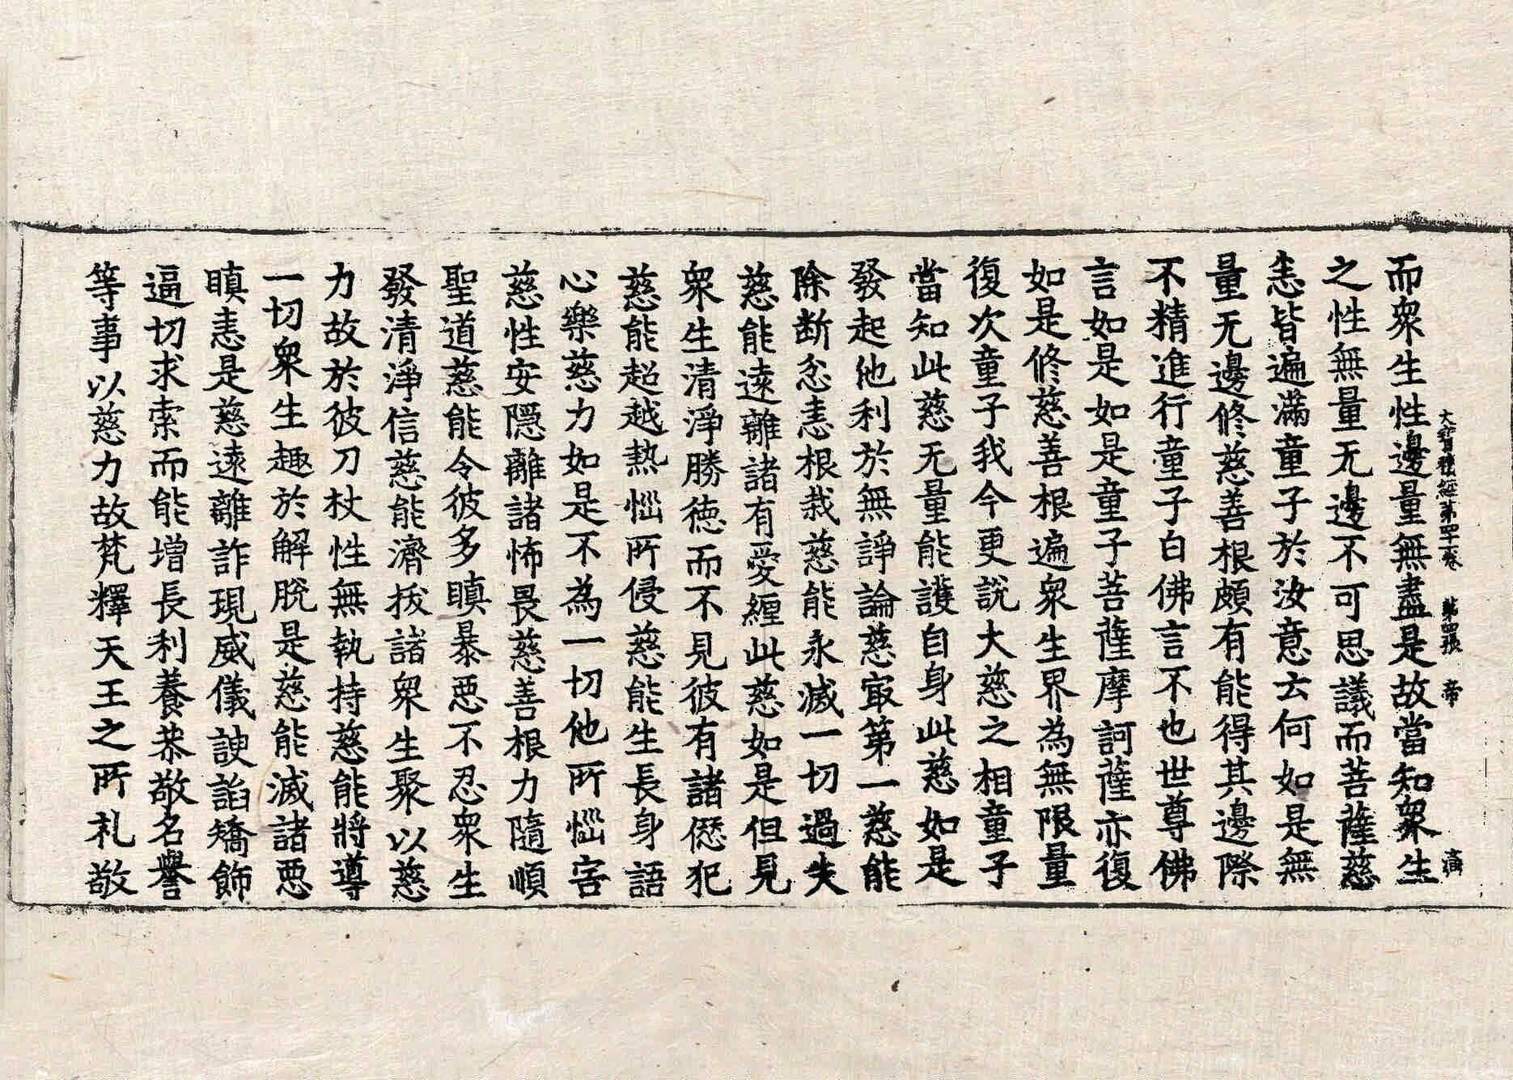 大寶積經第四十一卷 第四張 帝 濟
而衆生性邊量無盡是故當知衆生
之性無量无邊不可思議而菩薩慈
恚皆遍滿童子於汝意云何如是無
量无邊修慈善根頗有能得其邊際
不精進行童子白佛言不也世尊佛
言如是如是童子菩薩摩訶薩亦復
如是修慈善根遍衆生界為無限量
復次童子我今更說大慈之相童子
當知此慈无量能護自身此慈如是
發起他利於無諍論慈㝡第一慈能
除断忿恚根栽慈能永滅一切過失
慈能遠離諸有愛纏此慈如是但見
衆生清淨勝徳而不見彼有諸𠎝犯
慈能超越熱惱所侵慈能生長身語
心樂慈力如是不為一切他所惱害
慈性安隱離諸怖畏慈善根力隨順
聖道慈能令彼多瞋暴惡不忍衆生
發清淨信慈能濟拔諸衆生聚以慈
力故於彼刀杖性無執持慈能將導
一切衆生趣於解脫是慈能滅諸惡
瞋恚是慈遠離詐現威儀諛諂矯飾
逼切求索而能增長利養恭敬名譽
等事以慈力故梵釋天王之所礼敬